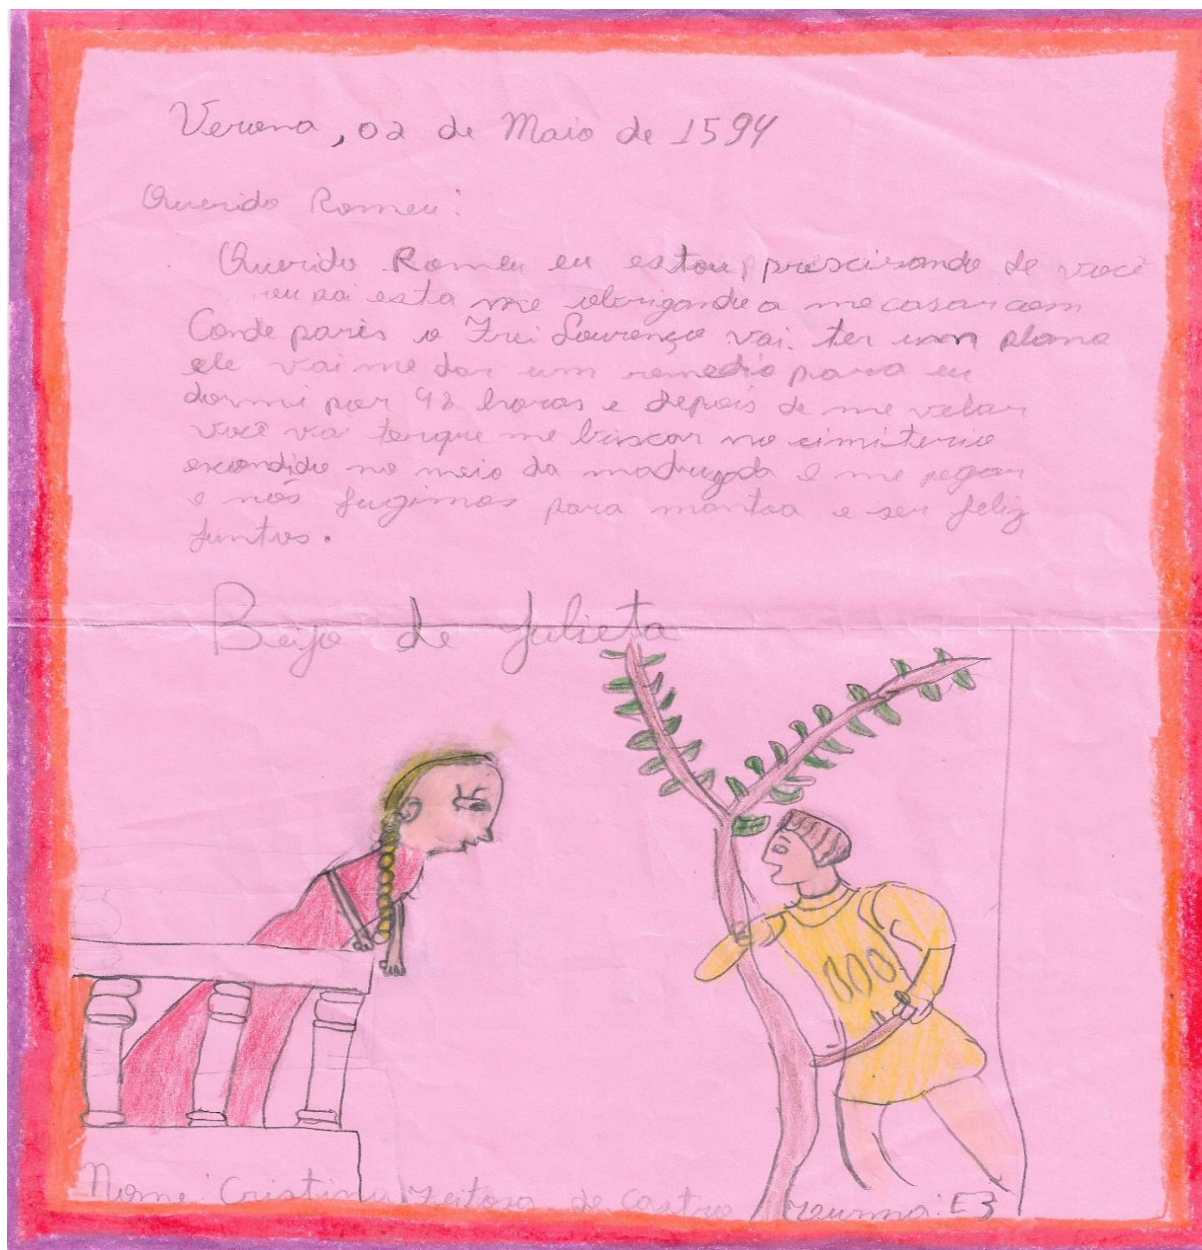 Verona, 02 de Maio de 1594
Querido Romeu:
Querido Romeu eu estou prescirando de você
meu pai esta me obrigando a me casar com
Conde paris o Frei Lourenço vai ter um plano
ele vai me dar um remedio para eu
dormi por 42 horas e depois de me velar
você vai ter que me buscar no cimiterio
escondido no meio da madrugada e me pegar
e nós fugimos para mantoa e ser feliz
juntos.
Beijo de Julieta
Nome: Cristina Feitosa de Castro turma: E3